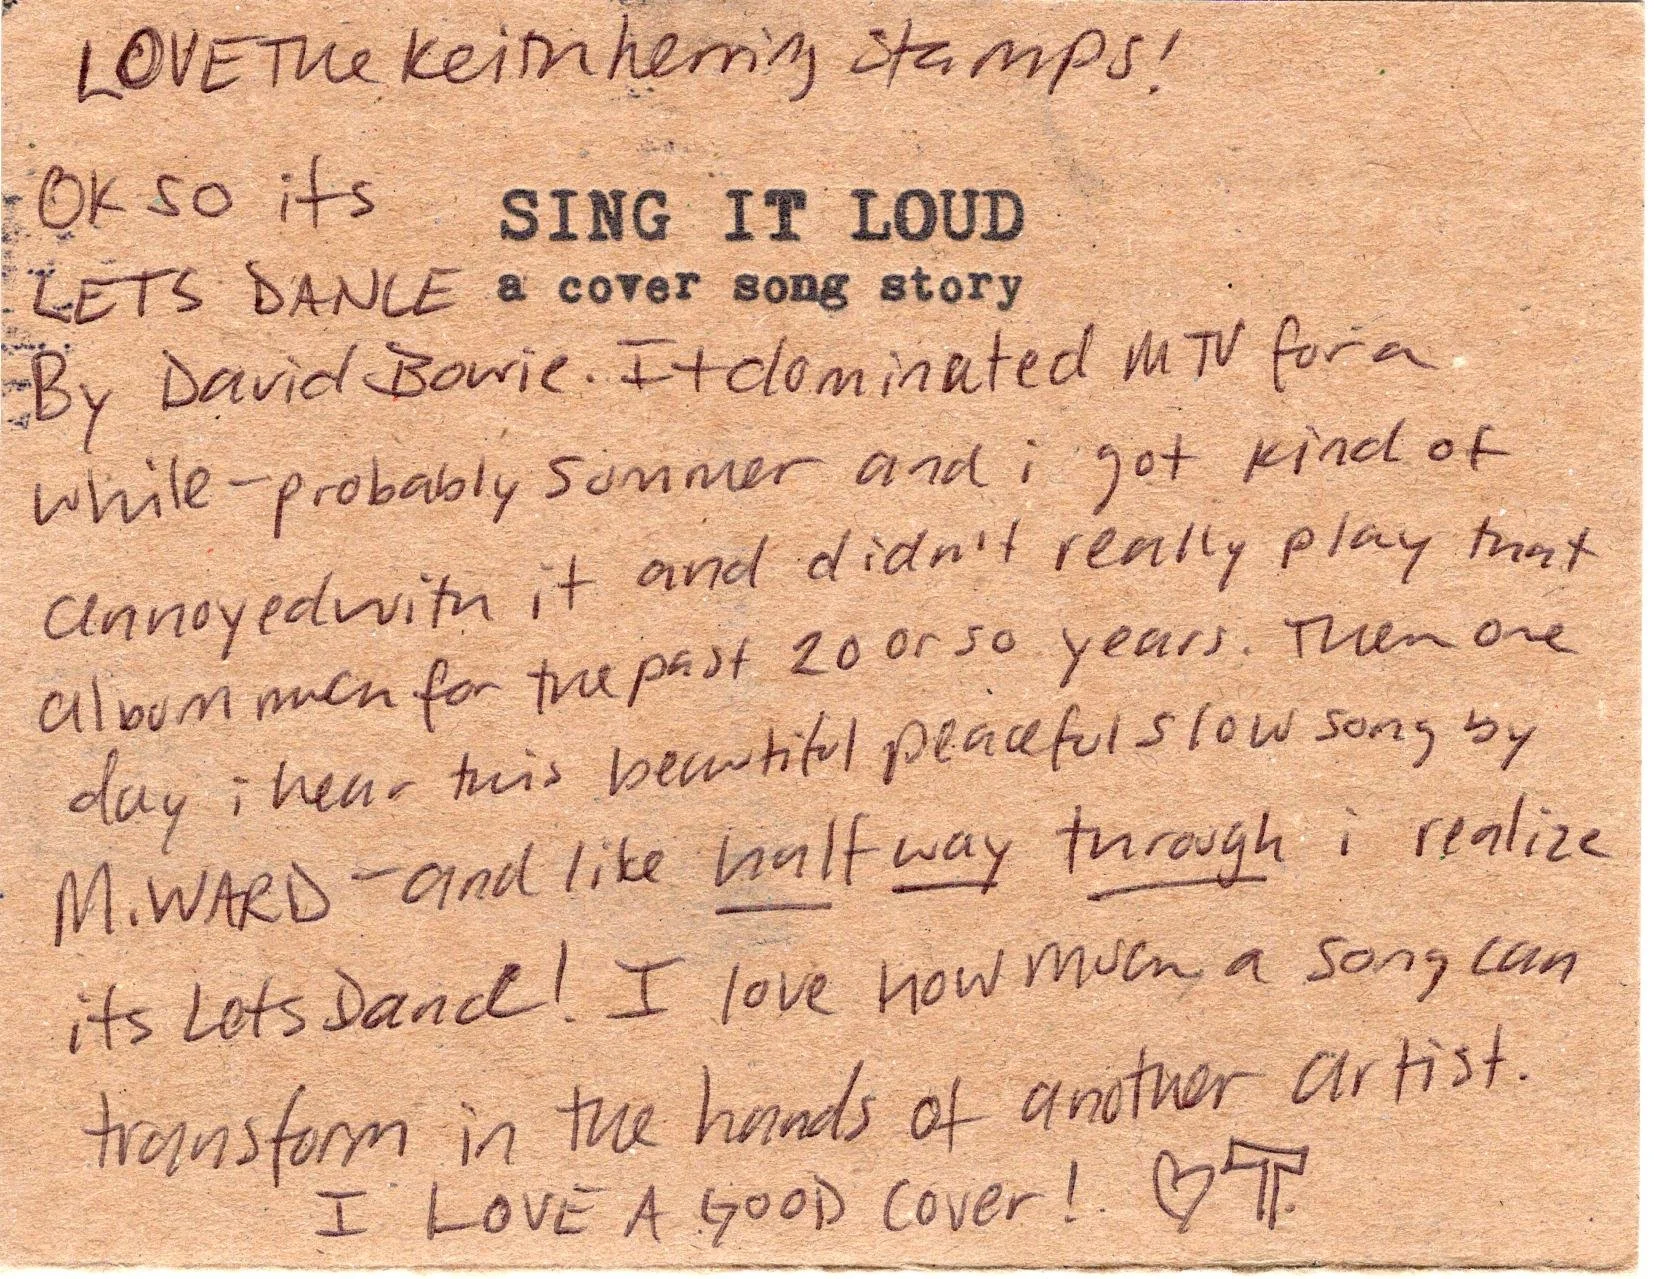 LOVE The Keith herring stamps!
OK so its
SING IT LOUD
LETS DANCE
a cover song story
By David Bowie. It dominated MTV for a
while - probably summer and i got kind of
annoyed with it and didn't really play that
album much for the past 20 or so years. Then one
day i hear this beautiful peaceful slow song by
M. WARD - and like half way through i realize
its Lets Dance! I love how much a song can
transform in the hands of another artist.
I LOVE A GOOD cover! ♡T.